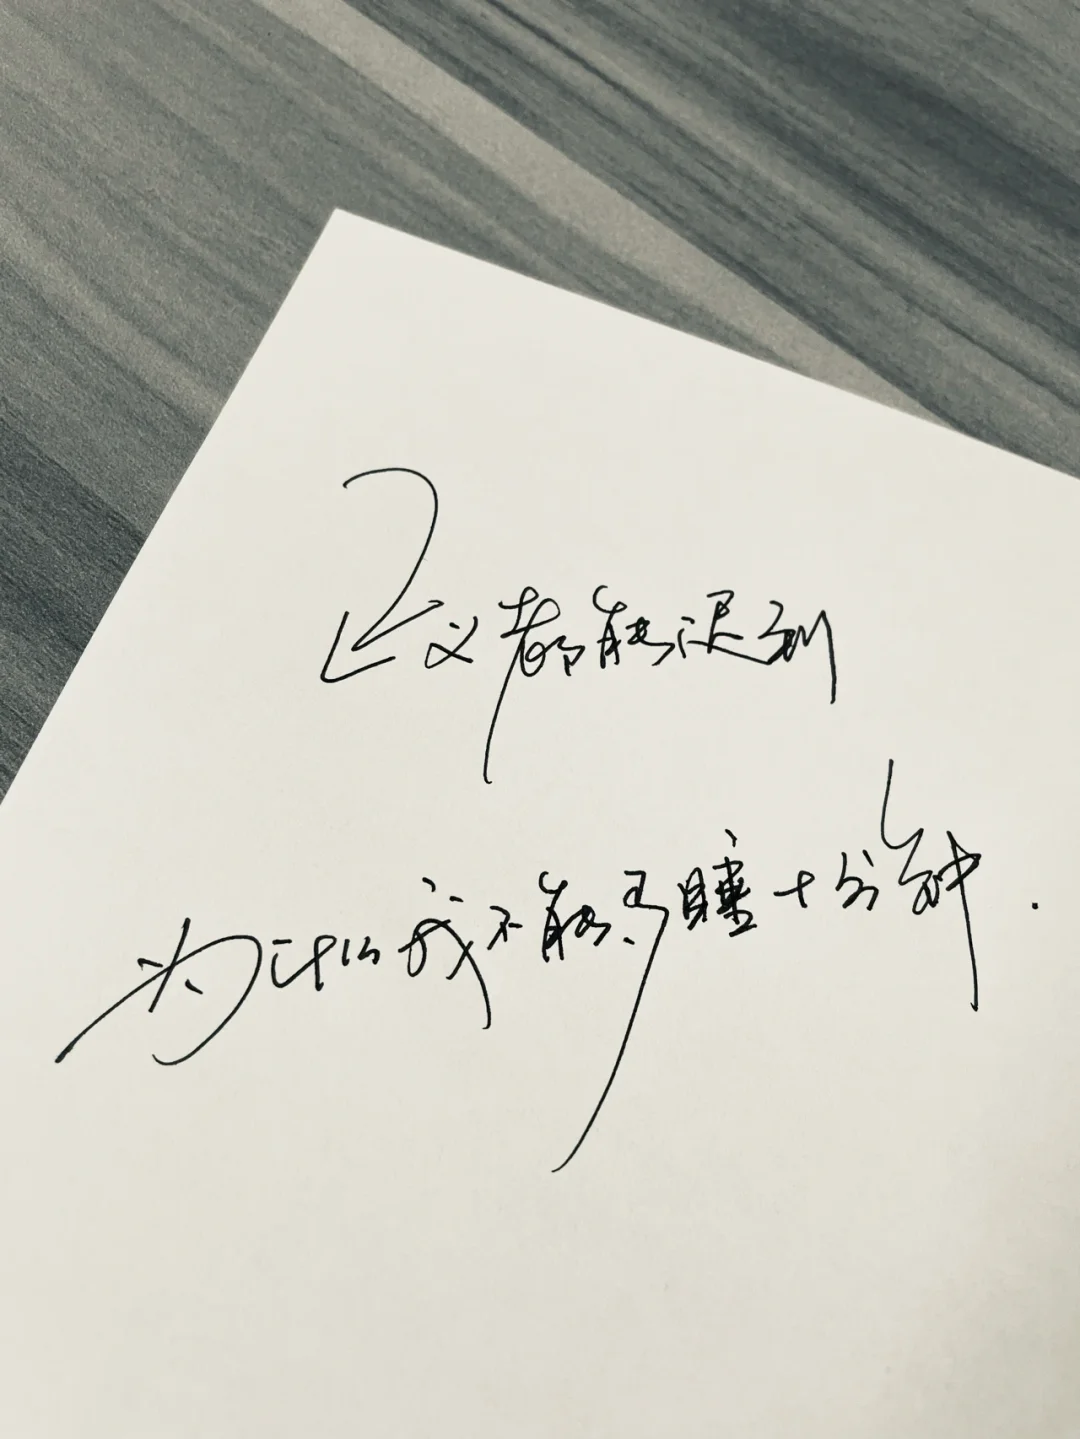 正义都能迟到
为什么我不能多睡十分钟.